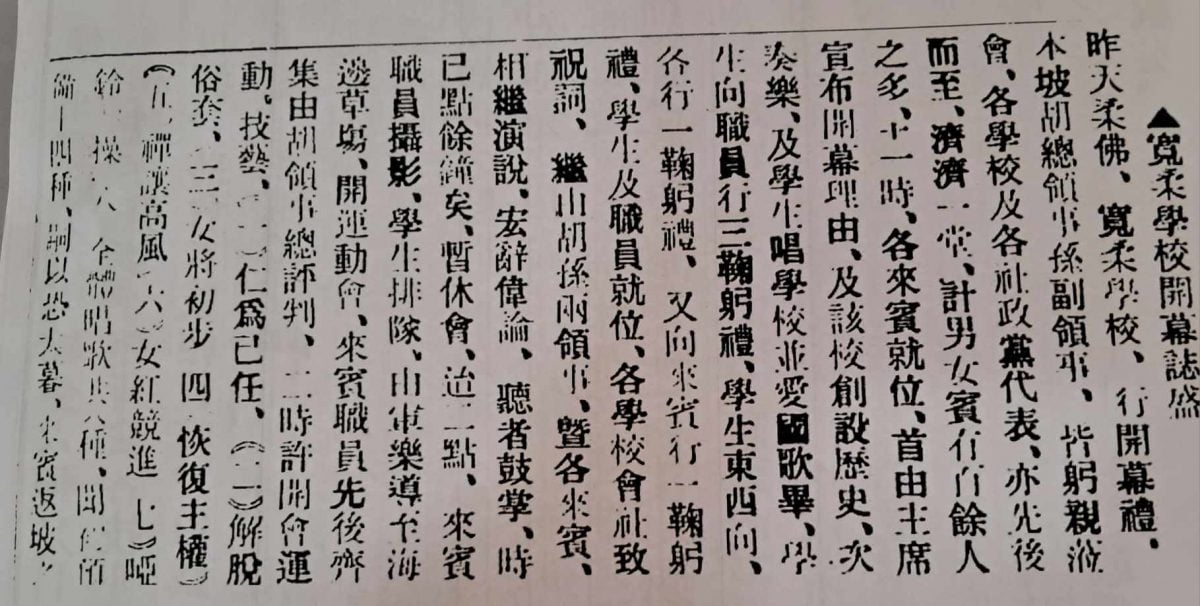 ▲寬柔學校開幕誌盛
昨天柔佛、寬柔學校、行開幕禮、
本坡胡總領事孫副領事、皆躬親涖
會、各學校及各社政黨代表、亦先後
而至、濟濟一堂、計男女賓有百餘人
之多、十一時、各來賓就位、首由主席
宣布開幕理由、及該校創設歷史、次
奏樂、及學生唱學校並愛國歌畢、學
生向職員行三鞠躬禮、學生東西向、
各行一鞠躬禮、又向來賓行一鞠躬
禮、學生及職員就位、各學校會社致
祝詞、繼由胡孫兩領事、暨各來賓、
相繼演說、宏辭偉論、聽者鼓掌、時
已點餘鐘矣、暫休會、迨二點、來賓
職員攝影、學生排隊、由軍樂導至海
邊草塲、開運動會、來賓職員先後齊
集由胡領事總評判、二時許開會運
動、技藝、(一)仁爲己任、(二)解脫
俗套、(三)女將初步 四 恢復主權)
(五)禪讓高風(六)女紅競進 七)啞
鈴 操 八 全體唱歌共八種、聞
十四種、嗣以恐太暮、來賓返坡